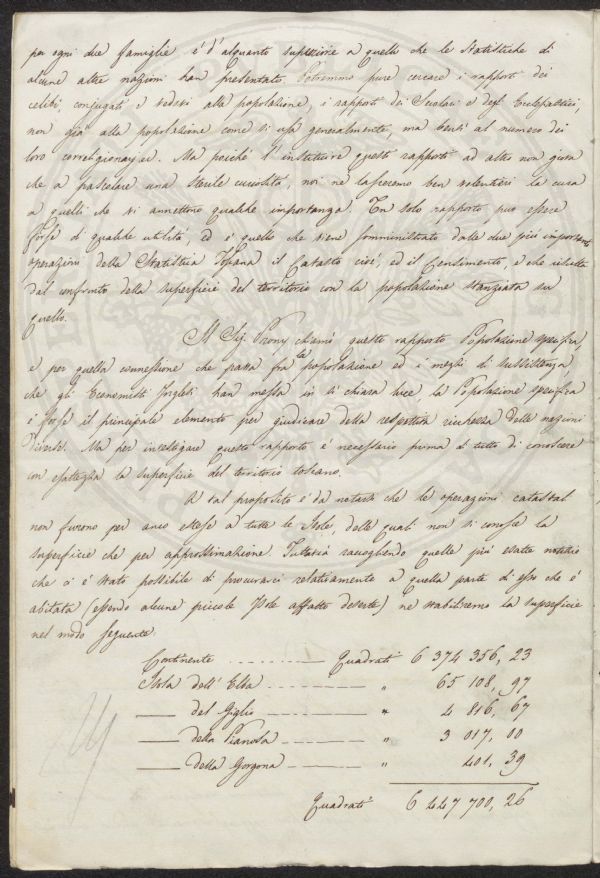 per ogni due famiglie è d'alquanto superiore a quelli che le Statistiche di
alcune altre nazioni han presentato. Potremmo pure cercare i rapporti dei
celibi, conjugati e vedovi alla popolazione, i rapporti dei Secolari e degl' Ecclesiastici,
non già alla popolazione come si usa generalmente, ma bensì al numero dei
loro correligionarj. Ma poichè l'instituire questi rapporti ad altro non giova
che a pascolare una sterile curiosità, noi ne lasceremo ben volentieri la cura
a quelli che vi annettono qualche importanza. Un solo rapporto può essere
forse di qualche utilità, ed è quello che viene somministrato dalle due più importanti
operazioni della Statistica Toscana il Catasto cioè, ed il Censimento, e che risulta
dal confronto della superficie del territorio con la popolazione stanziata su
quello.
Il Sig. Prony chiamò questo rapporto Popolazione specifica,
e per quella connessione che passa fra la popolazione ed i mezzi di sussistenza
che gli Economisti Inglesi han messa in sì chiara luce la Popolazione specifica
è forse il principale elemento per giudicare della respettiva ricchezza delle nazioni
diverse. Ma per investigare questo rapporto è necessario prima di tutto di conoscere
con esattezza la superficie del territorio toscano.
A tal proposito è da notarsi che le operazioni catastali
non furono per anco estese a tutte le Isole, delle quali non si conosce la
superficie che per approssimazione. Tuttavia raccogliendo quelle più esatte notizie
che ci è stato possibile di procurarci relativamente a quella parte di esse che è
abitata (essendo alcune piccole Isole affatto deserte) ne stabiliremo la superficie
nel modo seguente.
Continente . . . . . . . . Quadrati 6 374 356, 23
Isola dell' Elba . . . . . . . . " 65 108, 97
—— del Giglio . . . . . . . . " 4 816, 67
—— della Pianosa . . . . . . . . " 3 017, 00
—— della Gorgona . . . . . . . . " 401, 39
Quadrati 6 447 700, 26